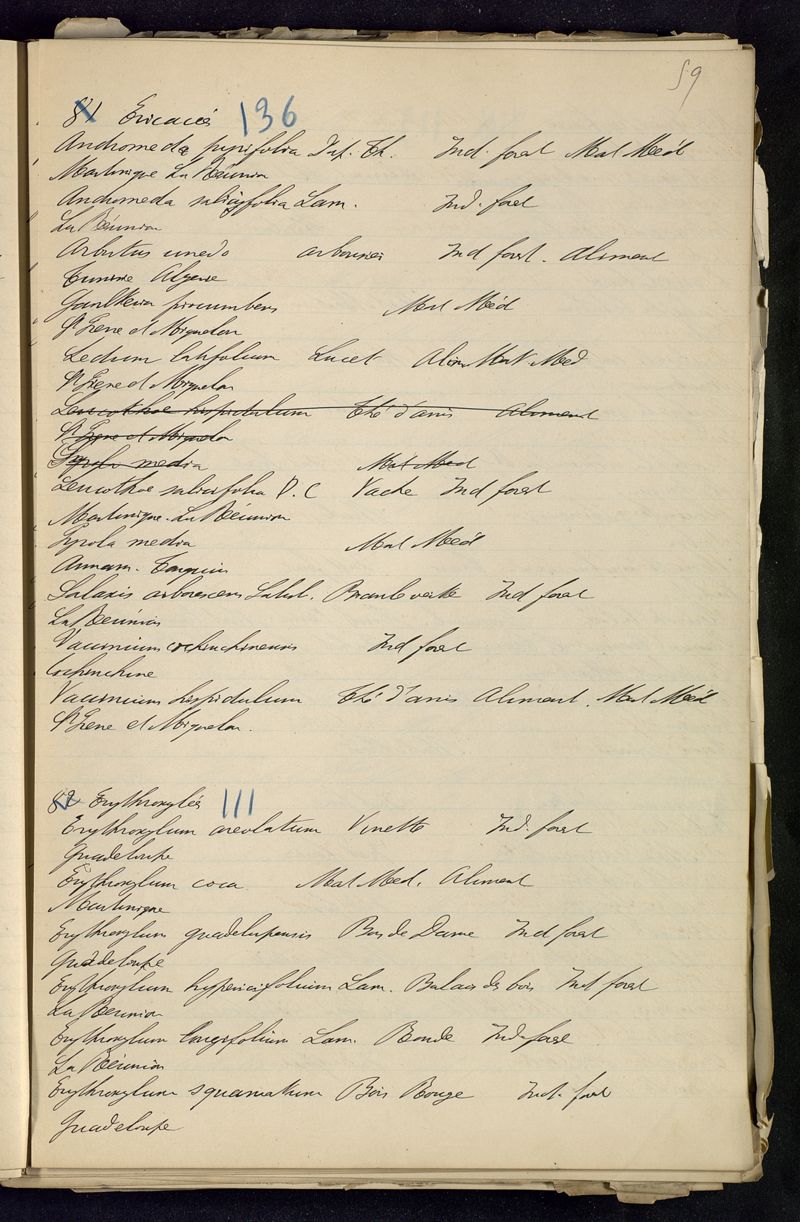 59
81 Ericacées 136
Andromeda pyrifolia Dup. Th. Ind. forest Mat Méd
Martinique La Réunion
Andromeda salicifolia Lam. Ind. forest
La Réunion
Arbutus unedo arbousier Ind forest. Aliment
Tunisie Algérie
Gaultheria procumbens Mat Méd
St Pierre et Miquelon
Ledum latifolium Lucet Alim Mat Med
St Pierre et Miquelon
Leucothoe hispidulum Thé d'anis Aliment
St Pierre et Miquelon
Pyrola media Mat Med
Leucothoe salicifolia D.C Vache Ind forest
Martinique. La Réunion
Pyrola media Mat Méd
Annam. Tonquin
Salaxis arborescens Labil. Branle verte Ind forest
La Réunion
Vaccinium cochinchinensis Ind forest
Cochinchine
Vaccinium hispidulum Thé d'anis Aliment. Mat Méd
St Pierre et Miquelon.
82 Erythroxylés 111
Erythroxylum areolatum Vinette Ind. forest
Guadeloupe
Erythroxylum coca Mat Med. Aliment
Martinique
Erythroxylum guadelupensis Bois de Dame Ind forest
Guadeloupe
Erythroxylum hypericifolium Lam. Balais de bois Ind forest
La Réunion
Erythroxylum longifolium Lam. Ronde Ind. forest
La Réunion
Erythroxylum squamatum Bois Rouge Ind. forest
Guadeloupe